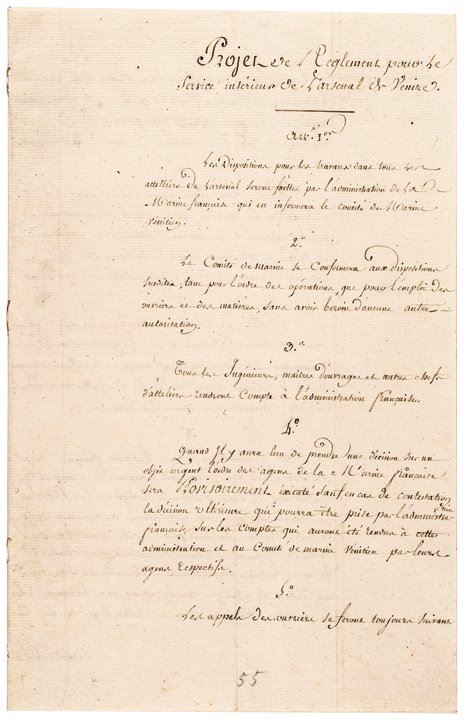 Projet de Reglement pour le
Service intérieur de L'arsenal de Venise.
Art. 1er
Les Dispositions pour les travaux dans tous les
atteliers de L'arsenal seront faittes par l'administration de la
Marine française qui en informera le comité de Marine
vénitien.
2.º
Le Comité de marine se Conformera aux dispositions
susdites, tant pour l'ordre des operations, que pour l'emploi des
ouvriers et des matières, sans avoir besoin d'aucune autre
autorisation.
3.º
Tous les Ingénieurs, maîtres d'ouvrages et autres chefs
d'atteliers rendront Compte à l'administration française.
4.º
Quand Il y aura lieu de prendre une décision sur un
objet urgent l'ordre des agens de la Marine française
sera Provisoirement exécuté sauf en cas de contestation
la décision ultérieure qui pourra être prise par l'administration
française sur les comptes qui auront été rendus à cette
administration et au Comité de marine vénitien par leurs
agens respectifs.
5.º
Les appels des ouvriers se feront toujours suivant
55